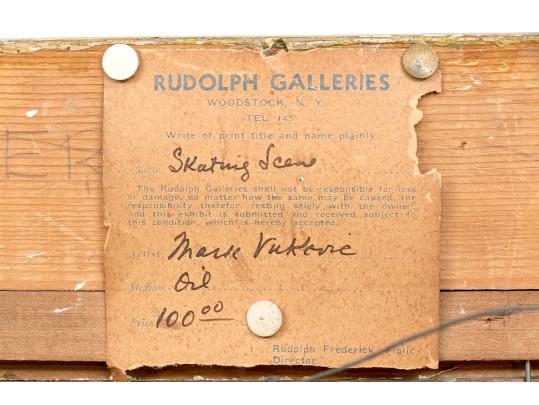 RUDOLPH GALLERIES
WOODSTOCK, N. Y.
TEL 145
Write or print title and name plainly
Title Skating Scene
The Rudolph Galleries shall not be responsible for loss
or damage, no matter how the same may be caused, the
responsibility therefor, resting solely with the owner,
and this exhibit is submitted and received subject to
this condition, which is hereby accepted.
Artist Mark Vukovic
Medium Oil
Price 100.00
Rudolph Frederick
Director